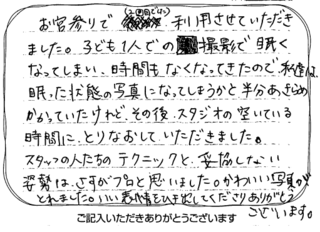 お宮参りで(2回目です)利用させていただき
ました。3ども1人での撮影で眠く
なってしまい、時間もなくなってきたので私達は、
眠った状態の写真になってしまうかと半分あきらめ
かかっていたけれど、その後、スタジオの空いている
時間に、とりなおしていただきました。
スタッフの人たちのテクニックと、妥協しない
姿勢は、さすがプロと思いました。かわいい写真が
とれました。いい表情をひき出してくださりありがとう
ございます。
ご記入いただきありがとうございます